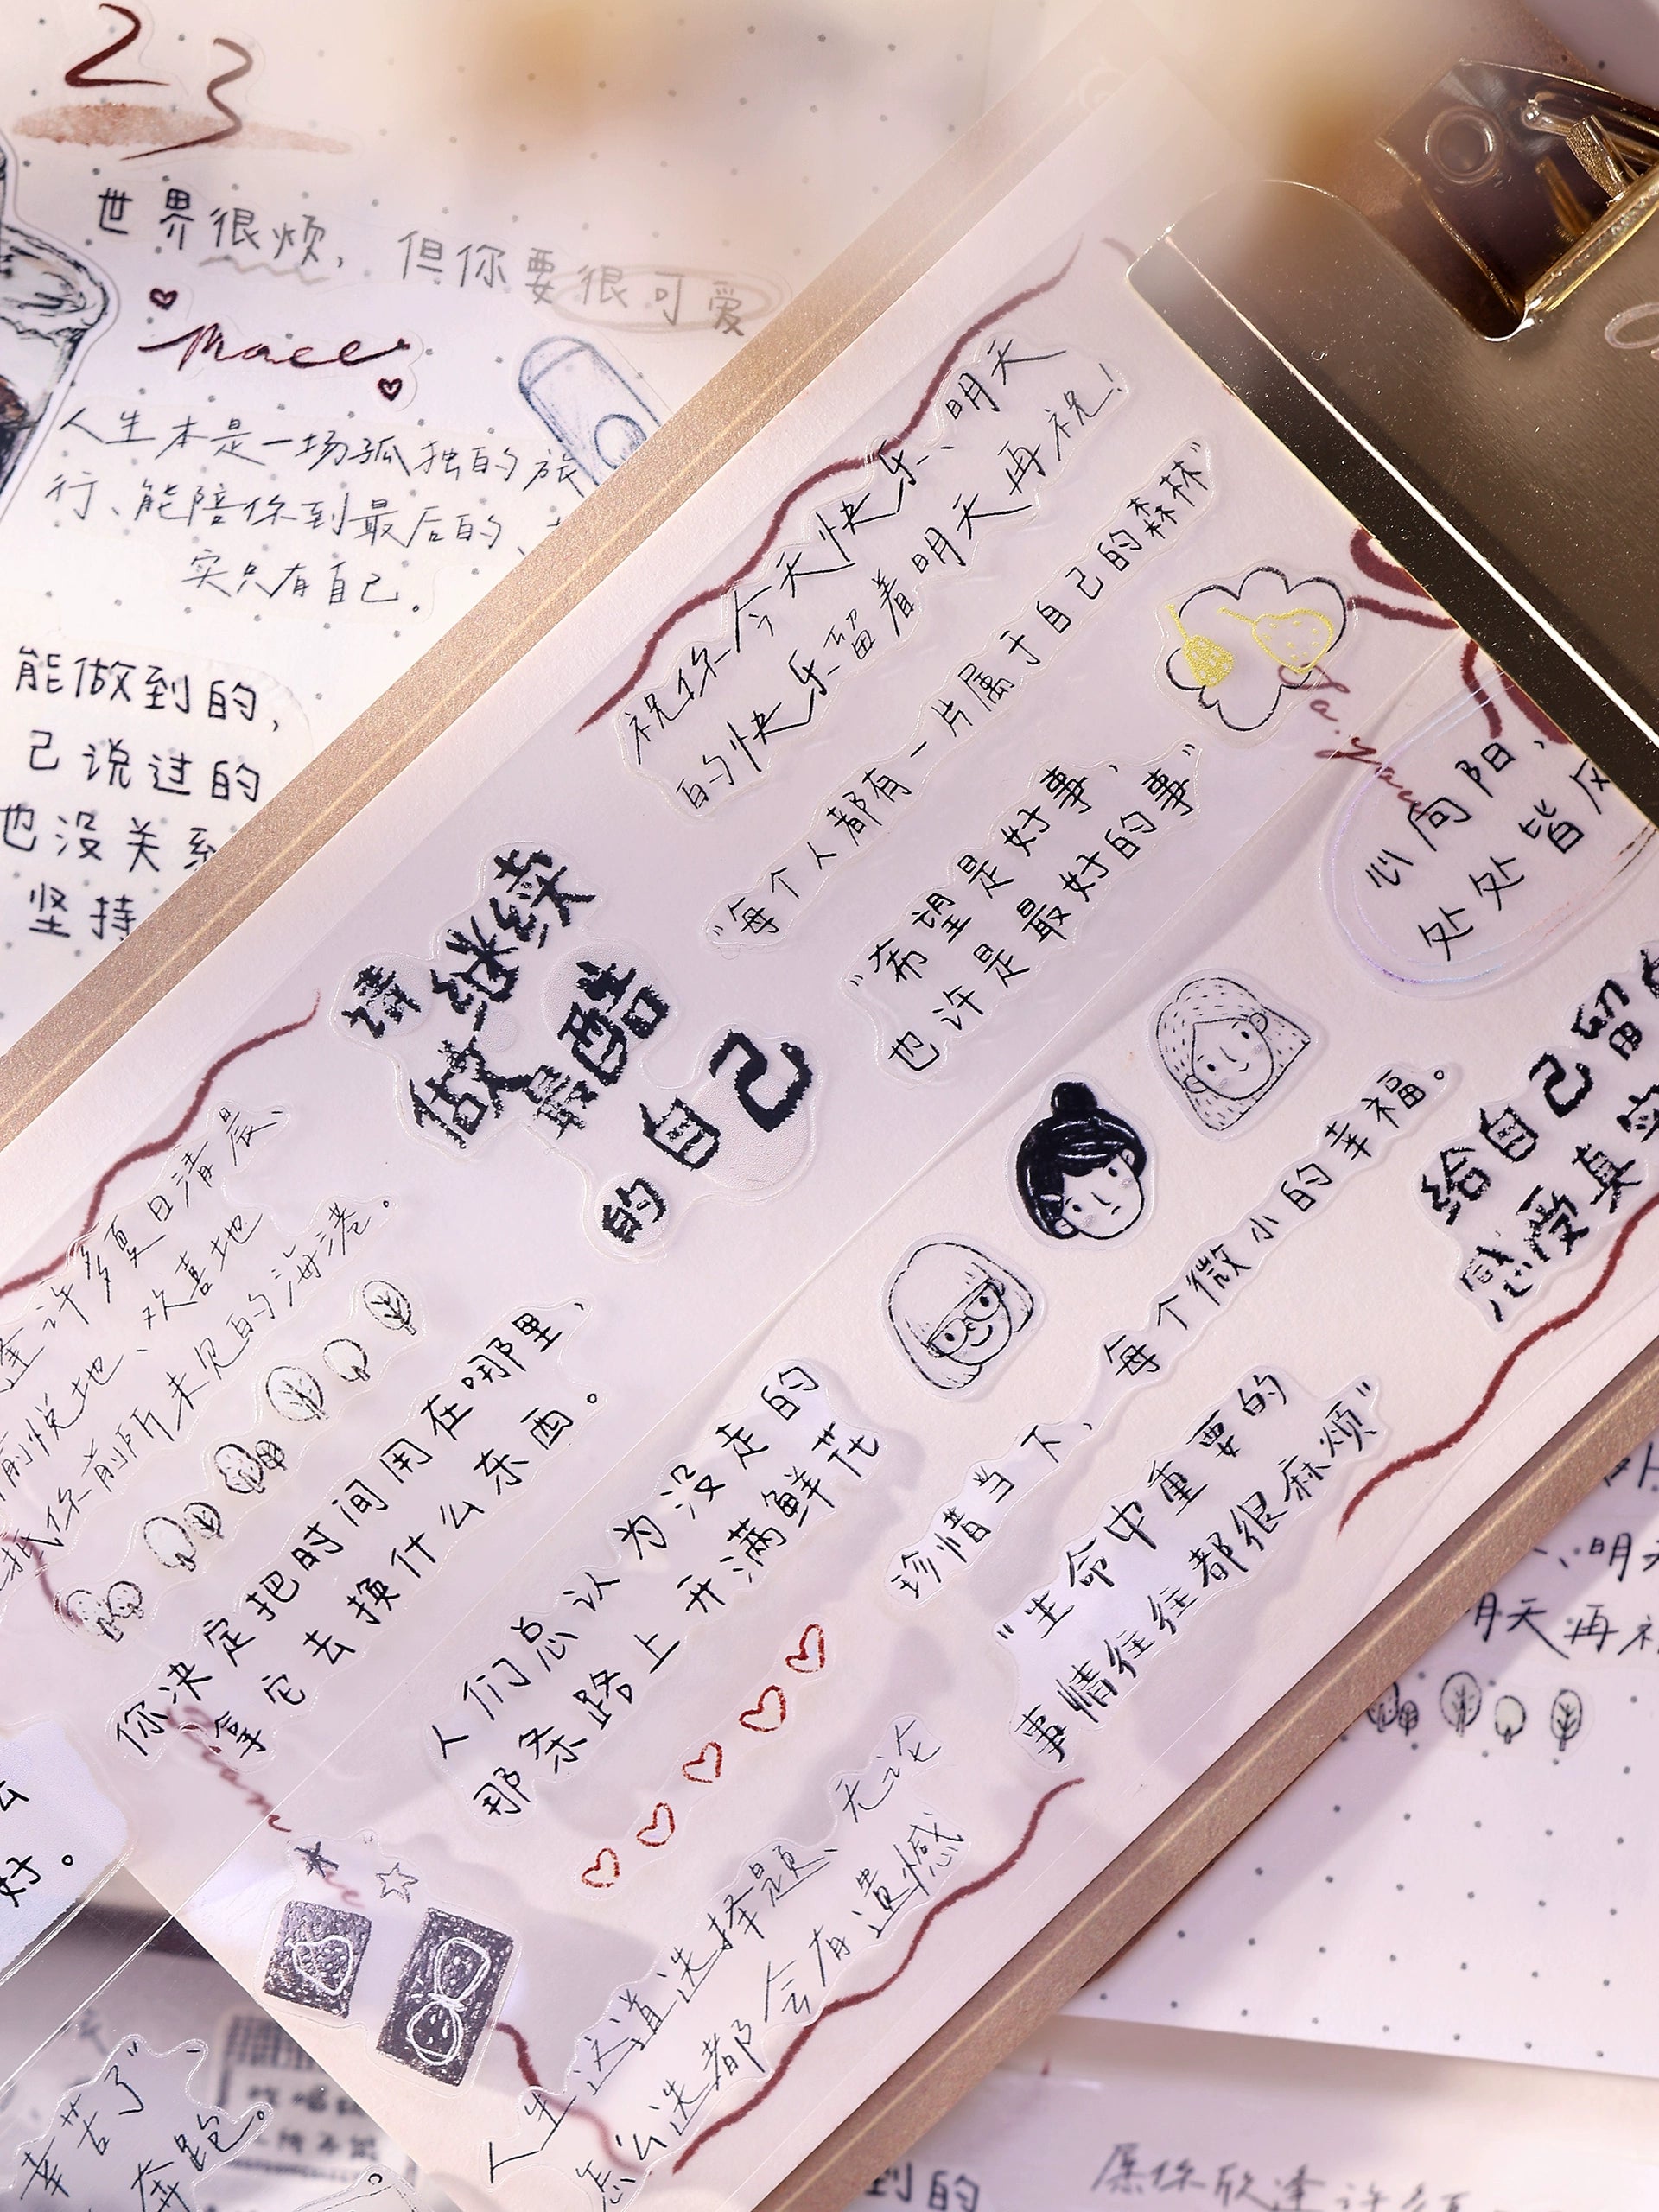 23
世界很烦，但你要很可爱
人生本是一场孤独的旅
行、能陪你到最后的、
实只有自己。
能做到的，
己说过的
也没关系
坚持
祝你今天快乐、明天
的快乐留着明天再祝！
"每个人都有一片属于自己的森林"
"希望是好事、
也许是最好的事"
心向阳、
处处皆风
请继续
做最酷
的自己
逢许多夏日清晨、
愉悦地、欢喜地
抵你前所未见的海港。
你决定把时间用在哪里、
拿它去换什么东西。
人们总认为没走的
那条路上开满鲜花
珍惜当下、每个微小的幸福。
"生命中重要的
事情往往都很麻烦"
给自己留
感受真实
人生这道选择题、无论
怎么选都会有遗憾
、明天
明天再祝
么
好。
辛苦了"、
奔跑。
到的
愿你欣逢许多夏